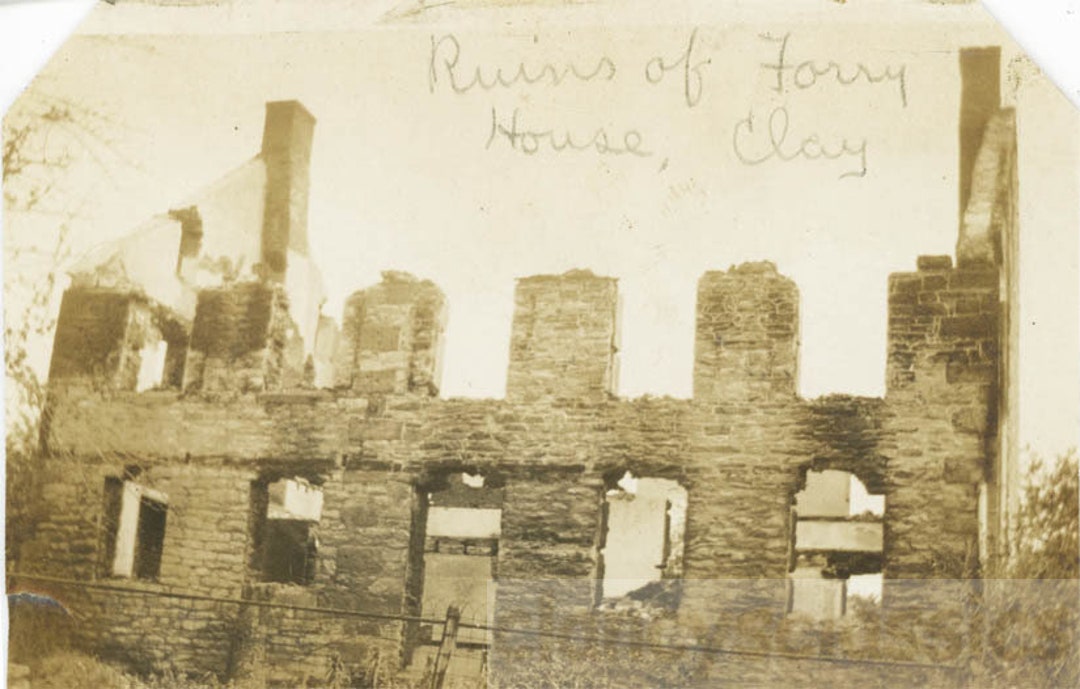 Ruins of Forry
House, Clay